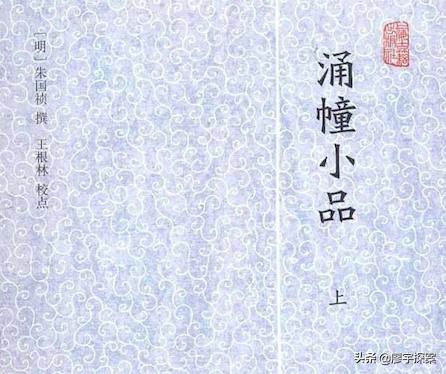 涌幢小品
上
[明]朱国祯 撰 王根林 校点
头条 @廖宇探案